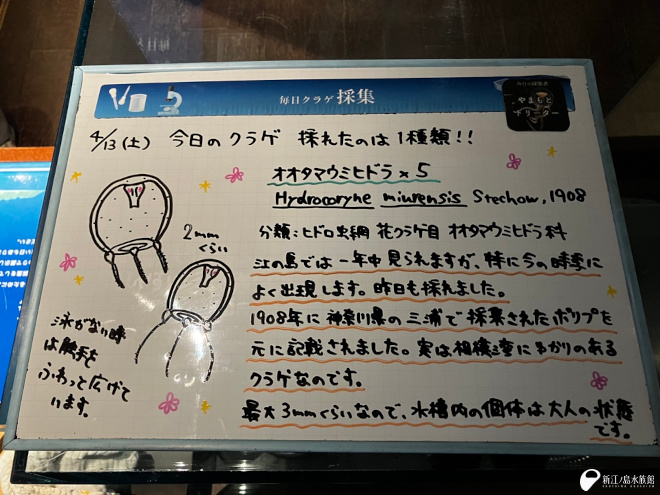 毎日クラゲ採集
やまもと
トリーター
4/13(土) 今日のクラゲ 採れたのは1種類!!
オオタマウミヒドラ×5
Hydrocoryne miurensis Stechow, 1908
分類:ヒドロ虫綱 花クラゲ目 オオタマウミヒドラ科
江の島では一年中見られますが、特に今の時季に
よく出現します。昨日も採れました。
1908年に神奈川県の三浦で採集されたポリプを
元に記載されました。実は相模湾にゆかりのある
クラゲなのです。
最大3mmくらいなので、水槽内の個体は大人の状態
です。
2mm
くらい
泳がない時
は触手を
ふわっと広げて
います。
新江ノ島水族館